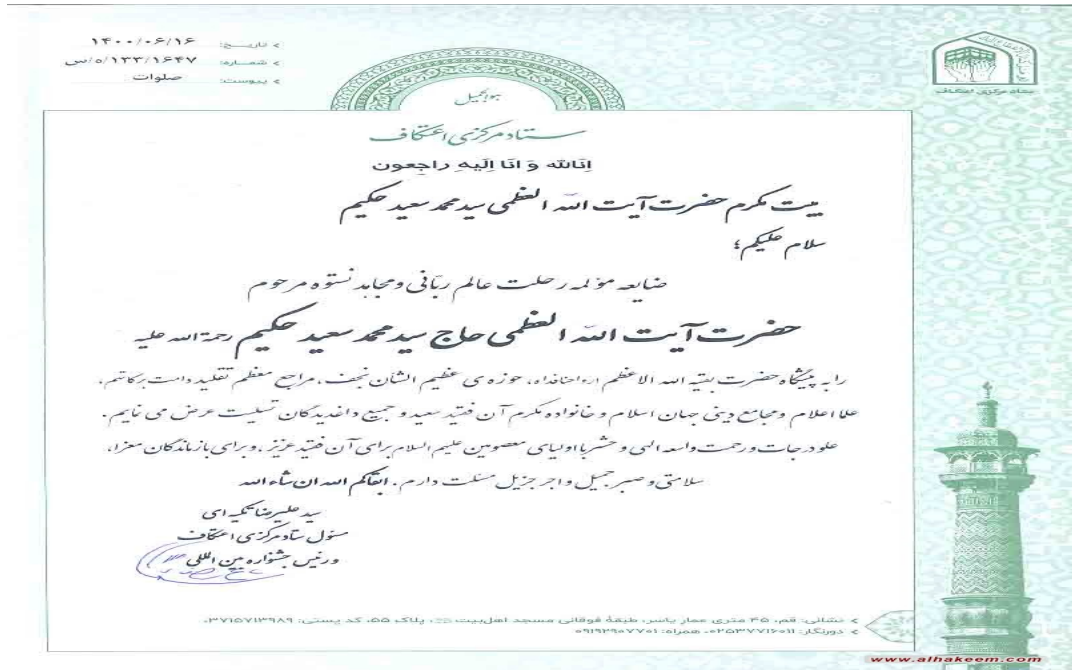 > تاریخ: ۱۴۰۰/۰۶/۱۶
> شماره: ۱۳۳/۱۶۴۷/ه/س
> پیوست: صلوات
ستاد مرکزی اعتکاف
هوالجمیل
ستاد مرکزی اعتکاف
اِنَالله وَ اِنَا اِلَیهِ راجعون
بیت مکرم حضرت آیت الله العظمی سید محمد سعید حکیم
سلام علیکم؛
ضایعه مؤلمه رحلت عالم ربّانی و مجاهد نستوه مرحوم
حضرت آیت الله العظمی حاج سید محمد سعید حکیم رحمة الله علیه
را به پیشگاه حضرت بقیه الله الاعظم ارواحنافداه، حوزه ی عظیم الشأن نجف، مراجع معظم تقلید دامت برکاتهم،
علما اعلام و مجامع دینی جهان اسلام و خانواده مکرم آن فقید سعید و جمیع داغدیدگان تسلیت عرض می نمایم.
علو درجات و رحمت واسعه الهی و حشر با اولیای معصومین علیهم السلام برای آن فقید عزیز، و برای بازماندگان معزا،
سلامتی و صبر جمیل و اجر جزیل مسئلت دارم. ابقاکم الله ان شاء الله
سید علیرضا تکیه ای
مسئول ستاد مرکزی اعتکاف
و رئیس جشنواره بین المللی
> نشانی: قم، ۴۵ متری عمار یاسر، طبقۀ فوقانی مسجد اهل‌بیت، پلاک ۵۵، کد پستی: ۳۷۱۵۷۱۳۹۸۹،
> دورنگار: ۰۲۵۳۷۷۱۶۰۱۱، همراه: ۰۹۱۹۲۹۰۷۷۰۱
www.alhakeem.com